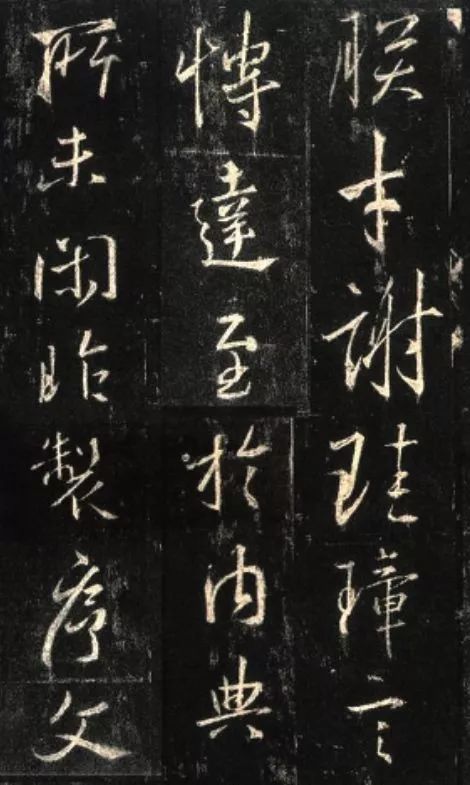 朕才謝珪璋言
愽達至於内典
所未閑昨製序文